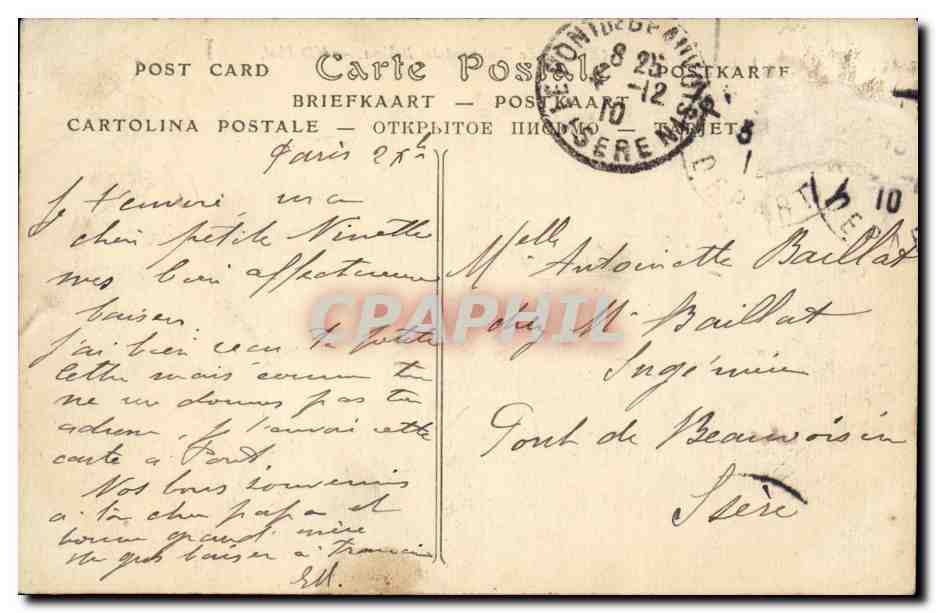 POST CARD Carte Postale POSTKARTE
BRIEFKAART — POSTKAART
CARTOLINA POSTALE — ОТКРЫТОЕ ПИСЬМО — TARJETA
LE PONT DE BEAUVOISIN
8 25
12
10
ISERE
DEPART
10
Paris
Je t'envoie ma
chère petite Ninette
mes bien affectueux
baisers
J'ai bien reçu ta petite
lettre mais comme tu
ne me donnes pas ton
adresse, je t'envoie cette
carte à Pont.
Nos bons souvenirs
à ton cher papa et
bonne grand mère
un gros baiser à
CPAPHIL
Melle Antoinette Baillat
chez Mr Baillat
Ingénieur
Pont de Beauvoisin
Isère